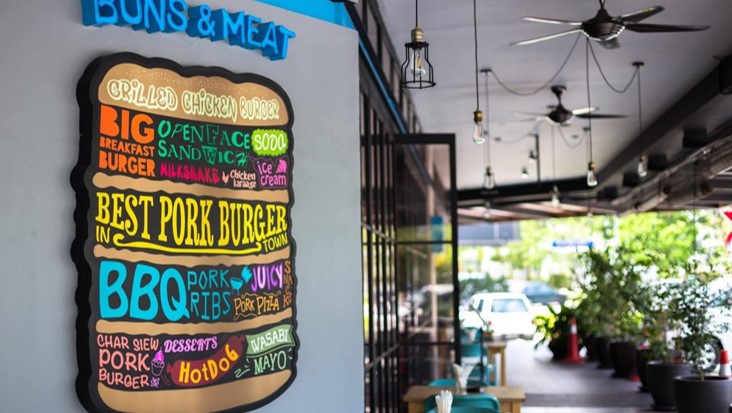 BUNS & MEAT
GRILLED CHICKEN BURGER
BIG
BREAKFAST
BURGER
OPEN FACE
SANDWICH
SODA
MILKSHAKE
Chicken
karaage
ice
cream
BEST PORK BURGER
IN TOWN
BBQ
PORK
RIBS
JUICY
PORK PIZZA
CHAR SIEW
PORK
BURGER
DESSERTS
HOTDOG
WASABI
MAYO